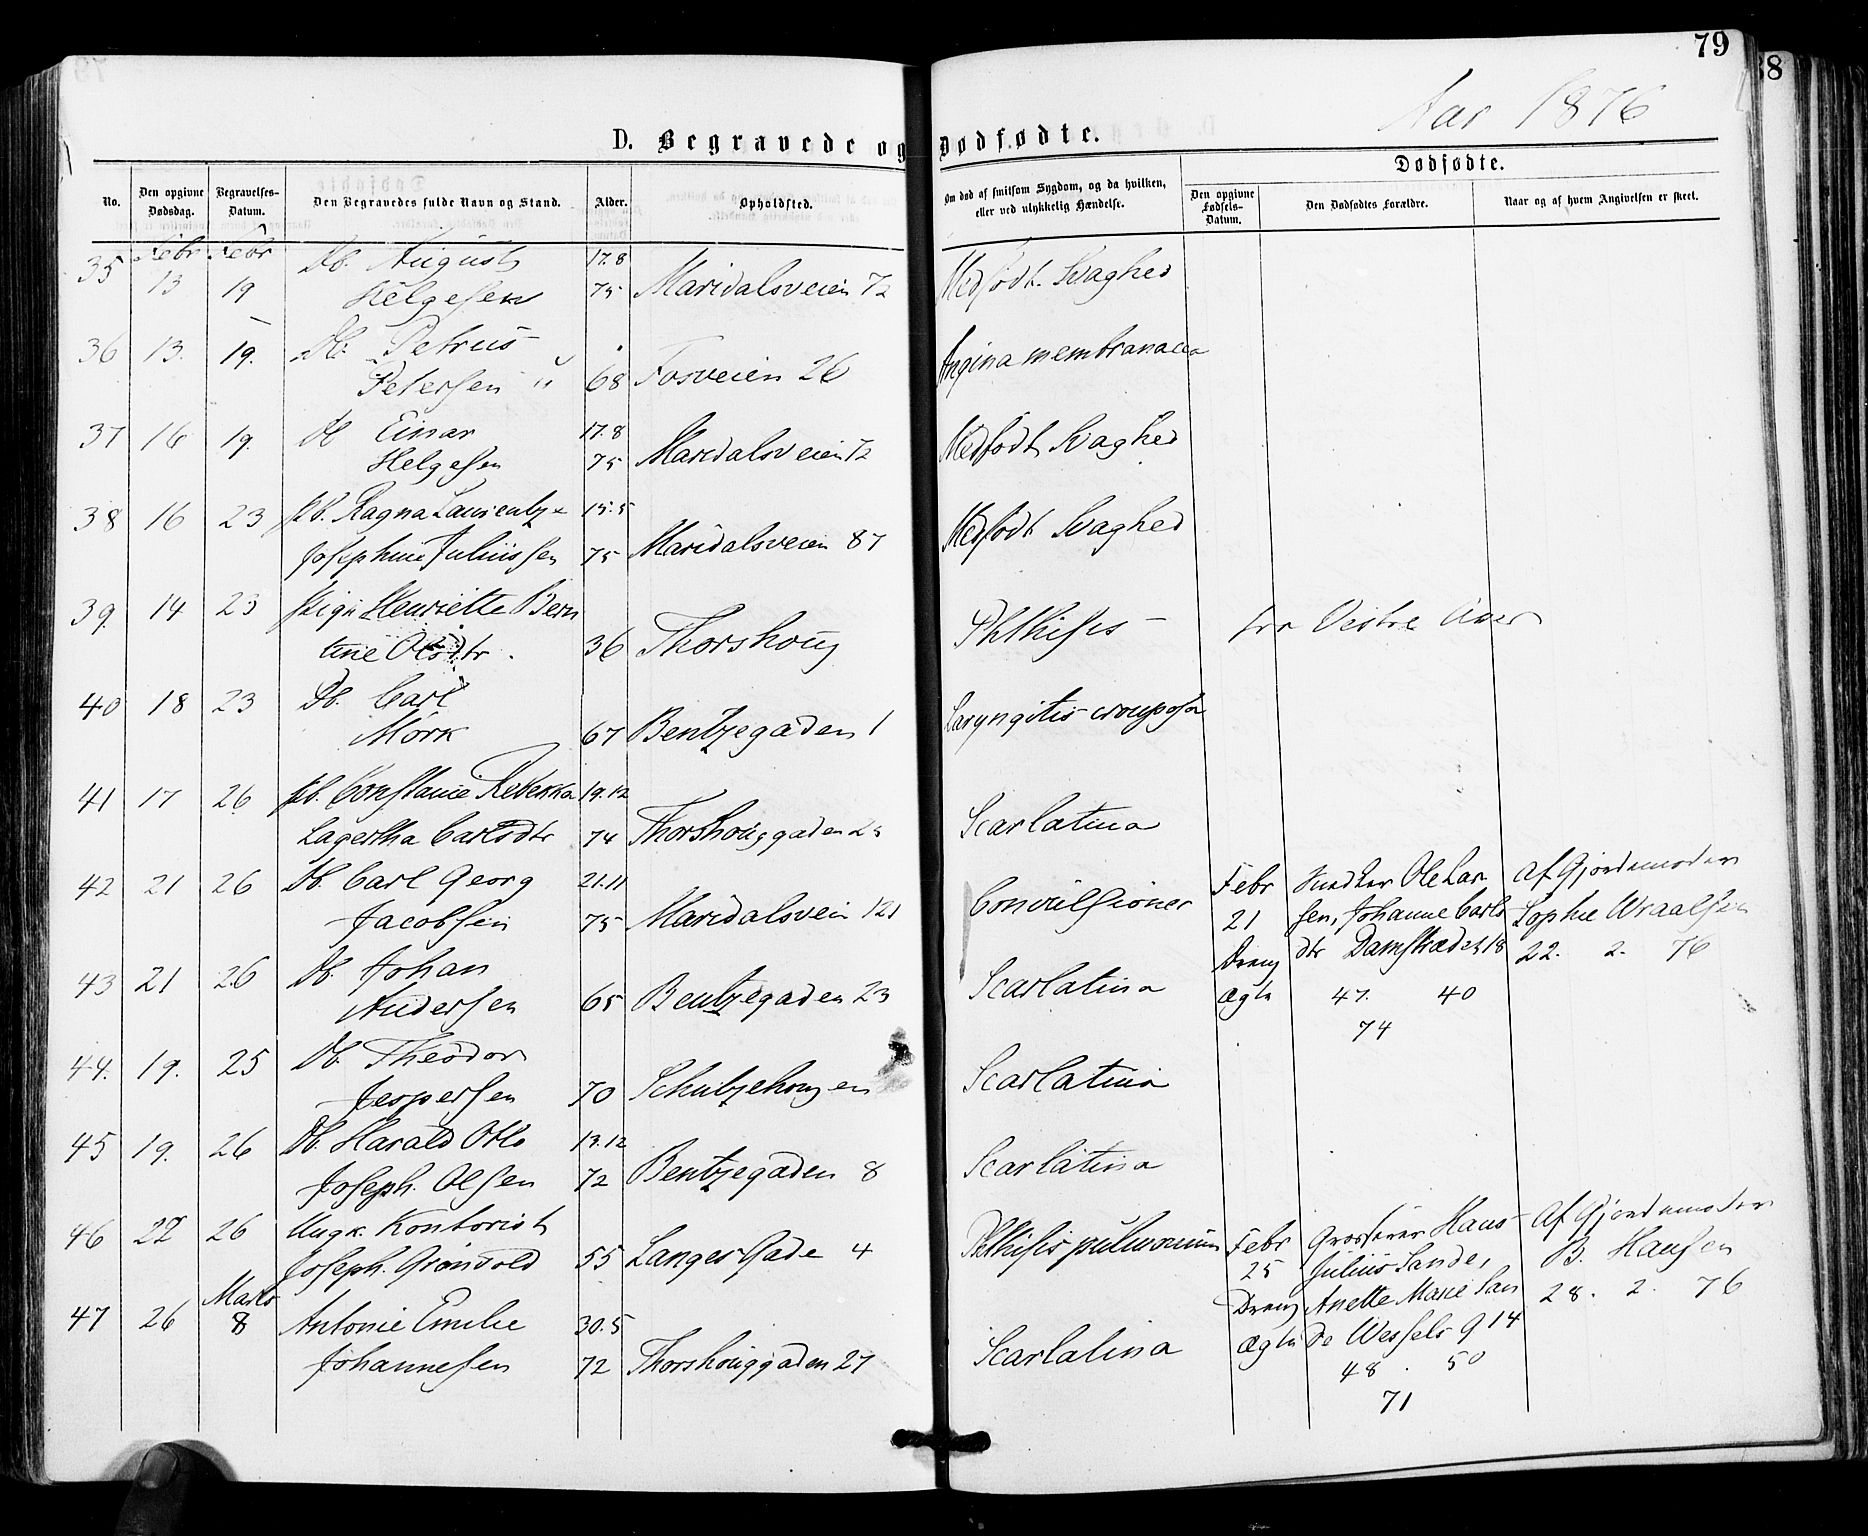 79
8
Aar 1876
D. Begravede og Dødfødte.
No.
Den opgivne Dødsdag.
Begravelses-Datum.
Den Begravedes fulde Navn og Stand.
Alder.
Opholdsted.
Om død af smitsom Sygdom, og da hvilken, eller ved ulykkelig Hændelse.
Dødfødte.
Den opgivne Fødsels-Datum.
Den Dødfødtes Forældre.
Naar og af hvem Angivelsen er skeet.
Febr Febr
35 13 19 Db. August 17.8
Helgesen 75 Maridalsveien 72 Medfødt Svaghed
36 13. 19. Db. Petrus
Petersen 68 Fosveien 26 Angina membranacea
37 16 19. Db Einar 17.8
Helgesen 75 Maridalsveien 72 Medfødt Svaghed
38 16 23 Pb. Ragna 15.5
Josephine Juliussen 75 Maridalsveien 87 Medfødt Svaghed
39. 14 23 Pige Henriette Bern
tine Olsdtr. 36 Thorshoug Phthisis - fra Vestre Aker
40 18 23 Db. Carl
Mörk 67 Bentzegaden 1 Laryngitis crouposa
41 17 26 Pb. Constanie Rebekka 19.12
Lagertha Carlsdtr 74 Thorshouggaden Scarlatina
42 21 26 Db. Carl Georg 21.11
Jacobsen 75 Maridalsvein 121 Convulsioner
Febr Snedker Ole Lar Af Gjordemoder
21 sen, Johanne Carls Sophie Wraalsen
Dreng dtr Damstrædet 18 22. 2. 76
Ægte 47. 40
74
43 21 26 Db. Johan
Andersen 65 Bentzegaden 23 Scarlatina
44. 19. 25 Db. Theodor
Jespersen 70 Schultzehougen Scarlatina
45 19. 26 Db. Harald Otto 13.12
Joseph. Olsen 72 Bentzegaden 8 Scarlatina
46 22 26 Ungk. Kontorist
Joseph. Grönvold 55 Langes Gade 4 Phthisis pulmonum
Febr Grosserer Hans Af Gjordemoder
25 Julius Sande, B. Hansen
Dreng Anette Marie San 28. 2. 76
Ægte de Wessels g 14
48 . 50
71
Marts
47 26 8 Antonie Emilie 30.5
Johannesen 72 Thorshouggaden 27 Scarlatina